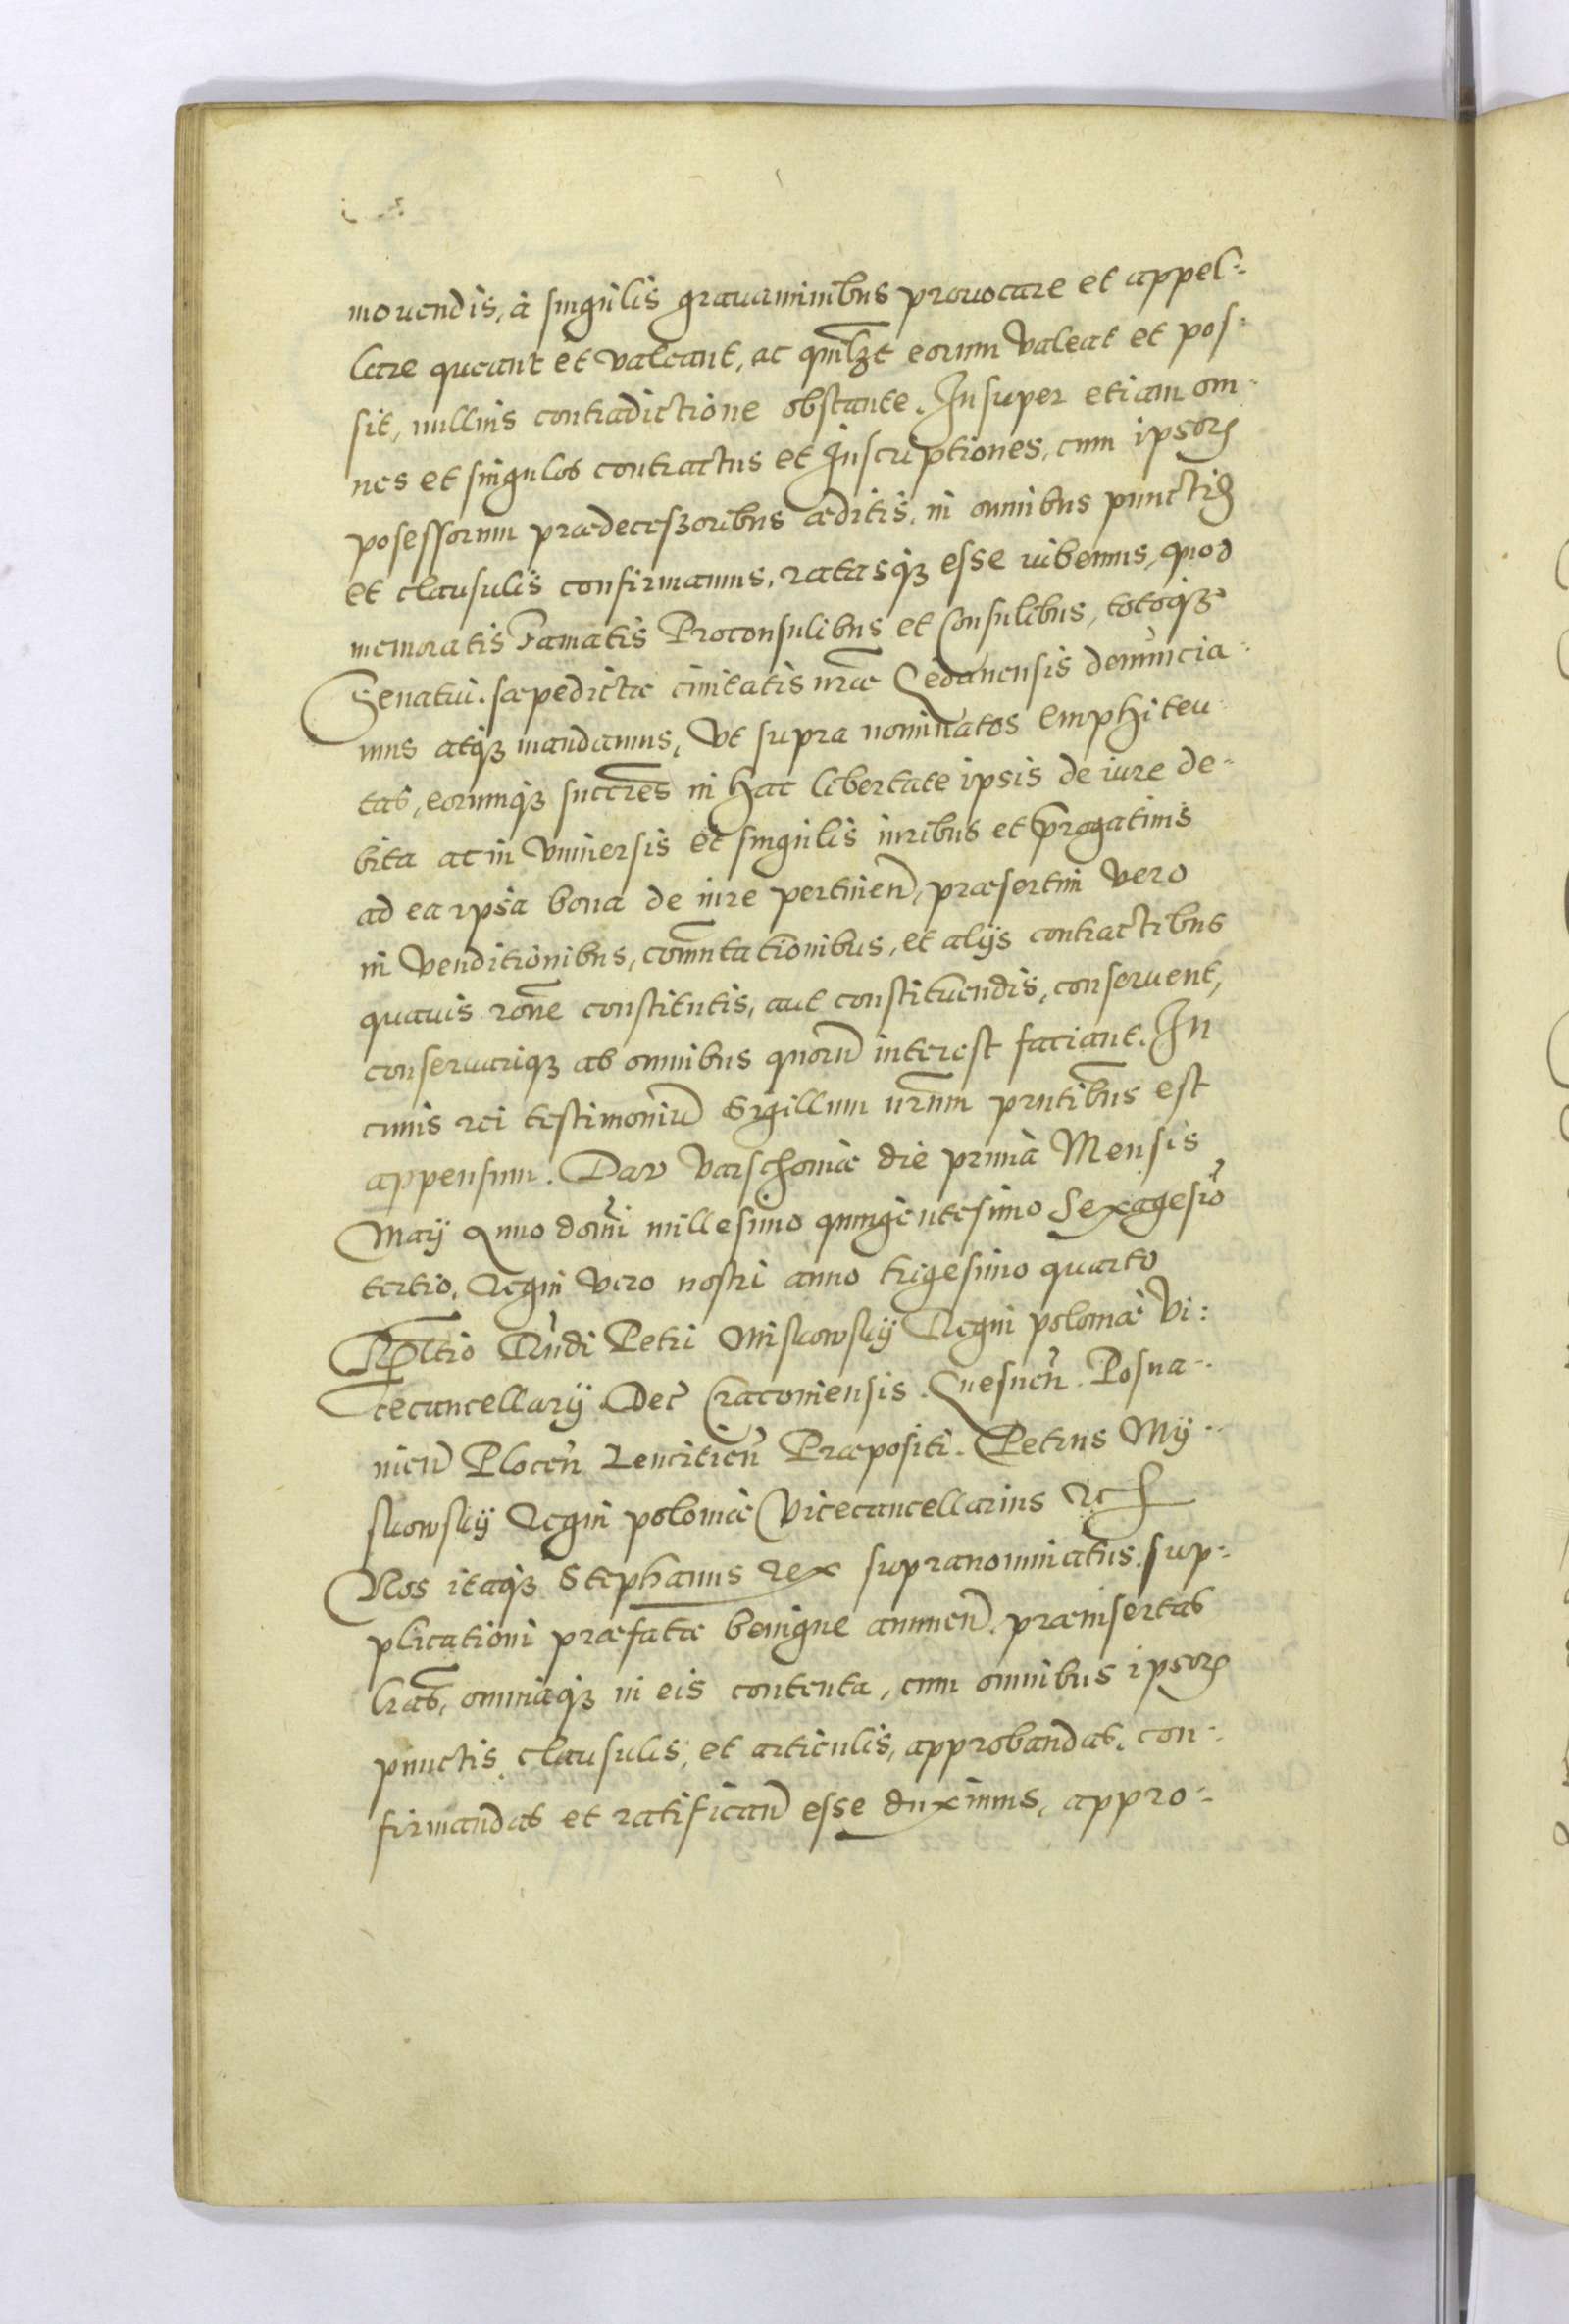 mouendis, à singulis grauaminibus prouocare et appel-
lare queant et valeant, ac qmlzt eorum valeat et pos-
sit, nullius contradictione obstante. Insuper etiam om-
nes et singulos contractus et Inscriptiones, cum ipsorꝝ
posessorum prædeceszoribus æditis, in omnibus punctis
et clausulis confirmamus, ratasqꝫ esse iubemus, quod
memoratis Famatis Proconsulibus et Consulibus, totoqꝫ
Senatui. sæpedictæ ciuitatis nrae Gedanensis denuncia-
mus atqꝫ mandamus, vt supra nominatos Emphiteu
tas, eorumqꝫ succres in hac libertate ipsis de iure de-
bita ac in vniuersis et singulis iuribus et prrogatiuis
ad ea ipsa bona de iure pertinen, præsertim vero
in venditionibus, comutationibus, et alijs contractibus
quauis rone constitutis, aut constituendis, conseruent,
conseruariqꝫ ab omnibus quoru interest faciant. In
cuius rei testimoniu Sigillum nrum prntibus est
appensum. Dat Varschouiæ die prima Mensis
Maij Anno domi millesimo quingentesimo Sexagesio
tertio. Regni vero nostri anno trigesimo quarto
Rltio Rndi Petri Miskowskij Regni poloniæ Vi:
cecancellarij. Dec Cracouiensis. Gnesnen. Posna-
nien Plocen Lencicien Præpositi. Petrus Mij-
skowskij Regni poloniæ Vicecancellarius
Nos itaqꝫ Stephanus rex supranominatus. sup-
plicationi præfatæ benigne annuen. præinsertas
lras, omniaqꝫ in eis contenta, cum omnibus ipsorꝝ
punctis clausulis, et articulis, approbandas, con-
firmandas et ratifican esse duximus, appro-